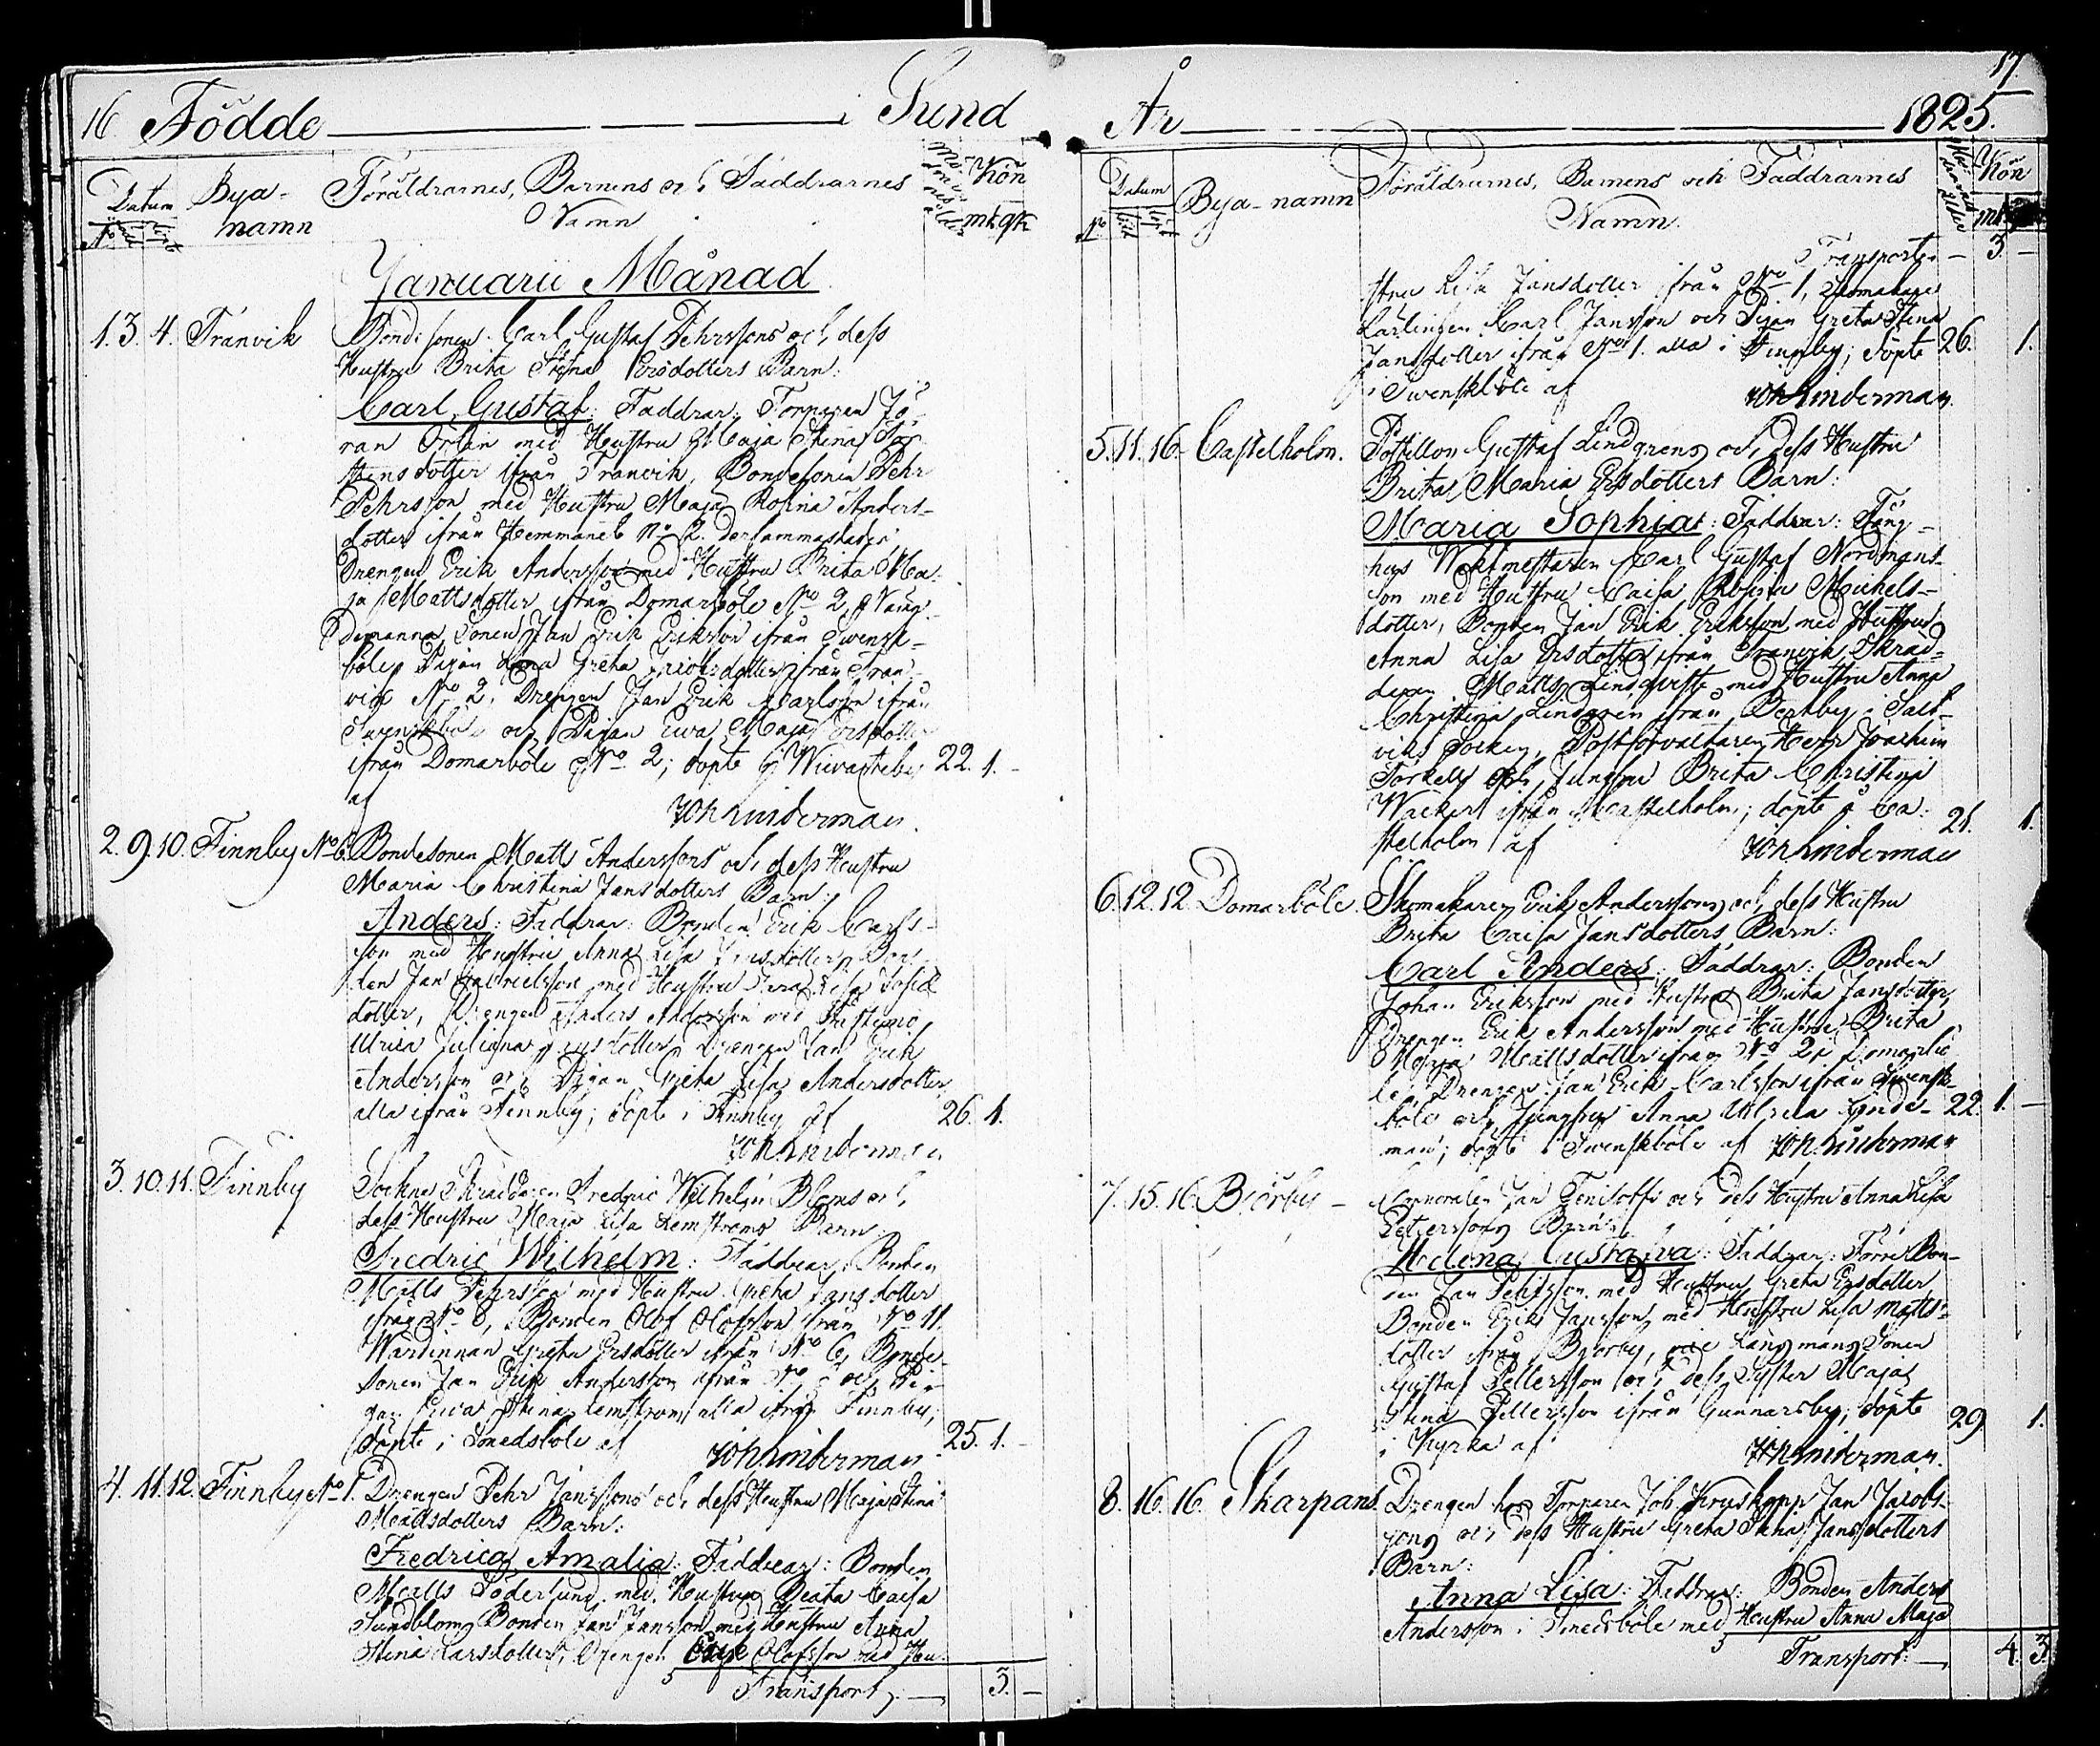 16. Födde i Sund
Datum
Bya-namn
Föräldrarnes, Barnens och Faddrarnes
Namn
Kön
mk. qk
Januarii Månad
1. 3. 4. Tranvik Bondesonen Carl Gustaf Pehrssons och dess
Hustru Brita Stina Ersdotters Barn:
Carl Gustaf: Faddrar: Torparen Jö-
ran Orlin med Hustru Maja Stina
stensdotter ifrån Tranvik, Bondesonen Pehr
Pehrsson med Hustru Maja Rosina Anders-
dotter ifrån Hemmanet No 2. dersammastädes,
Drengen Erik Andersson med Hustru Brita Ma-
ja Mattsdotter ifrån Domarböle No 2,
Sonen Jan Erik Eriksson ifrån Svensk-
böle, Pigan Lena Greta ifrån Tran-
vik No 2, Drengen Jan Erik Carlsson ifrån
Svenskböle och Pigan Ewa Maja Ersdotter
ifrån Domarböle No 2; döpte i 22. 1. -
af Joh Linderman.
2. 9. 10. Finnby No 6. Bondesonen Matts Anderssons och dess Hustru
Maria Christina Jansdotters Barn:
Anders: Faddrar: Bonden Erik Carls-
son med Hustru Anna Lisa Jansdotter, Bon-
den Jan Gabrielsson med Hustru Lisa
dotter, Drengen Anders Andersson med
Ulrica Juliana Jansdotter, Drengen Jan Erik
Andersson och Pigan Greta Lisa Andersdotter,
alla ifrån Finnby; döpte i Finnby af 26. 1.
Joh Linderman
3. 10. 11. Finnby Sockne Skräddaren Fredric Wilhelm Bloms och
dess Hustru Maja Lisa Lemströms Barn
Fredric Wilhelm: Faddrar: Bonden
Matts Pehrsson med Hustru Greta Jansdotter
ifrån No 8, Bonden Olof Olofsson ifrån No 11.
Wärdinnan Greta Ersdotter ifrån No 6, Bonde-
sonen Jan Erik Andersson ifrån No och Pi-
gan Ewa Stina Lemström, alla ifrån Finnby;
döpte i Smedsböle af Joh Linderman 25. 1. -
4. 11. 12. Finnby No 1. Drengen Pehr Janssons och dess Hustru Maja Stina
Mattsdotters Barn:
Fredrica Amalia: Faddrar: Bonden
Matts Söderlund med Hustru Beata Caisa
Sundblom, Bonden Jan Jansson med Hustru Anna
Stina Larsdotter, Drengen Erik Olofsson med Hu-
Transport — 3. —
År 1825.
17.
Datum
No
Bya-namn
Föräldrarnes, Barnens och Faddrarnes
Namn.
Kön
mk
Transport — 3. —
stru Lisa Jansdotter ifrån No 1, Skomakare
Lärlingen Carl Jansson och Pigan Greta Stina
Jansdotter ifrån No 1. alla i Finnby; döpte 26. 1.
i Svenskböle af Joh Linderman.
5. 11. 16. Castelholm. Postillon Gustaf Lindgrens och dess Hustru
Brita Maria Ersdotters Barn:
Maria Sophia: Faddrar: Fång-
hus Waktmestaren Carl Gustaf Nordmans-
son med Hustru Caisa Rosina Michels-
dotter, Bonden Jan Erik Eriksson med Hustru
Anna Lisa Ersdotter ifrån Tranvik, Skräd-
daren Matts Lindqvist med Hustru Anna
Christina Lindgren ifrån Bertby i Salt-
viks Socken, Postförvaltaren Herr Joachim
Torkell och Jungfru Brita Christina
Wacker ifrån Castelholm; döpte å Ca-
stelholm af Joh Linderman 21. 1.
6. 12. 12. Domarböle. Skomakaren Erik Anderssons och dess Hustru
Brita Caisa Jansdotters Barn:
Carl Anders: Faddrar: Bonden
Johan Eriksson med Hustru Brita Jansdotter,
Drengen Erik Andersson med Hustru Brita
Maja Mattsdotter ifrån No 2 i Domarbö-
le, Drengen Jan Erik Carlsson ifrån Svensk-
böle och Jungfru Anna Ulrica Linde- 22. 1. —
man; döpte i Svenskböle af Joh Linderman
7. 15. 16. Björby — Corporalen Jan och dess Hustru Anna Lisa
Petterssons Barn:
Helena Gustafva: Faddrar: Förre Bon-
den Jan Pehrsson med Hustru Greta Ersdotter,
Bonden Erik Jansson med Hustru Lisa Matts-
dotter ifrån Björby, Sonen
Gustaf Pettersson och dess Syster Maja
Stina Pettersson ifrån Gunnarsby; döpte 29. 1.
i Kyrka af Joh Linderman.
8. 16. 16. Skarpans. Drengen hos Torparen Joh. Kruskopp Jan Jacobs-
sons och dess Hustru Greta Stina Jansdotters
Barn:
Anna Lisa: Faddrar: Bonden Anders
Andersson i Smedsböle med Hustru Anna Maja
Transport — 4. 3.